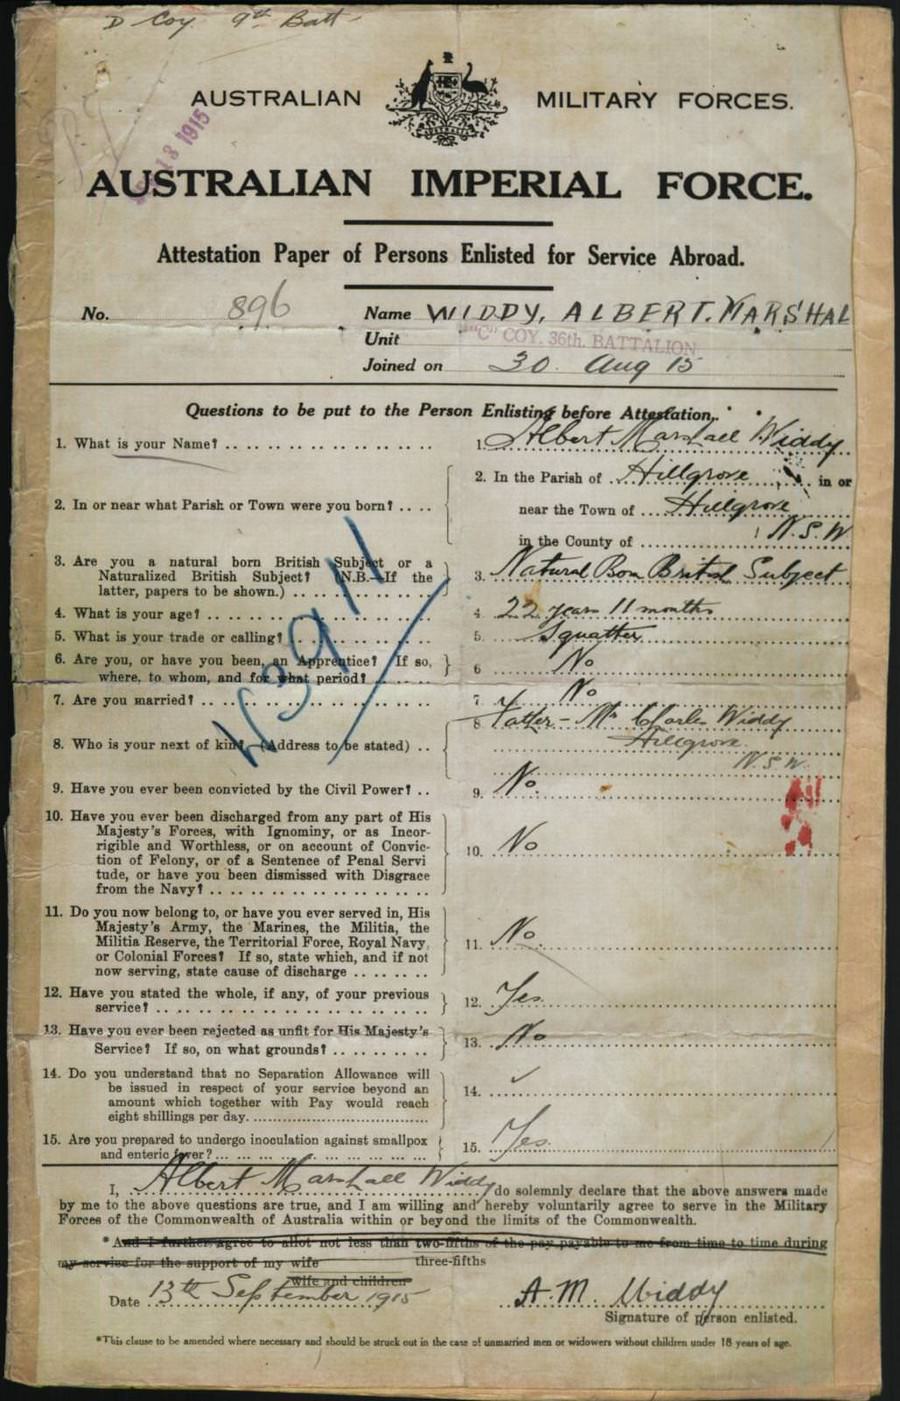 D Coy. 9th Batt
13 1915
AUSTRALIAN MILITARY FORCES.
AUSTRALIAN IMPERIAL FORCE.
Attestation Paper of Persons Enlisted for Service Abroad.
No. 896 Name WIDDY, ALBERT. MARSHAL
Unit "C" COY. 36th. BATTALION
Joined on 30. Aug 15
Questions to be put to the Person Enlisting before Attestation.
1. What is your Name? 1. Albert Marshall Widdy
2. In or near what Parish or Town were you born? 2. In the Parish of Hillgrove in or
near the Town of Hillgrove
in the County of N.S.W
3. Are you a natural born British Subject or a
Naturalized British Subject? (N.B.—If the
latter, papers to be shown.) 3. Natural Bon British Subject
4. What is your age? 4. 22 years 11 months
5. What is your trade or calling? 5. Squatter
6. Are you, or have you been, an Apprentice? If so,
where, to whom, and for what period? 6. No
7. Are you married? 7. No
8. Who is your next of kin? (Address to be stated) 8. Father - Mr Charles Widdy
Hillgrove
N.S.W.
9. Have you ever been convicted by the Civil Power? 9. No.
10. Have you ever been discharged from any part of His
Majesty's Forces, with Ignominy, or as Incor-
rigible and Worthless, or on account of Convic-
tion of Felony, or of a Sentence of Penal Servi
tude, or have you been dismissed with Disgrace
from the Navy? 10. No
11. Do you now belong to, or have you ever served in, His
Majesty's Army, the Marines, the Militia, the
Militia Reserve, the Territorial Force, Royal Navy
or Colonial Forces? If so, state which, and if not
now serving, state cause of discharge 11. No.
12. Have you stated the whole, if any, of your previous
service? 12. Yes.
13. Have you ever been rejected as unfit for His Majesty's
Service? If so, on what grounds? 13. No
14. Do you understand that no Separation Allowance will
be issued in respect of your service beyond an
amount which together with Pay would reach
eight shillings per day. 14. ✓
15. Are you prepared to undergo inoculation against smallpox
and enteric fever? 15. Yes.
I, Albert Marshall Widdy do solemnly declare that the above answers made
by me to the above questions are true, and I am willing and hereby voluntarily agree to serve in the Military
Forces of the Commonwealth of Australia within or beyond the limits of the Commonwealth.
*And I further agree to allot not less than two-fifths of the pay payable to me from time to time during
my service for the support of my wife three-fifths
wife and children
Date 13th September 1915 A.M. Widdy
Signature of person enlisted.
*This clause to be amended where necessary and should be struck out in the case of unmarried men or widowers without children under 18 years of age.